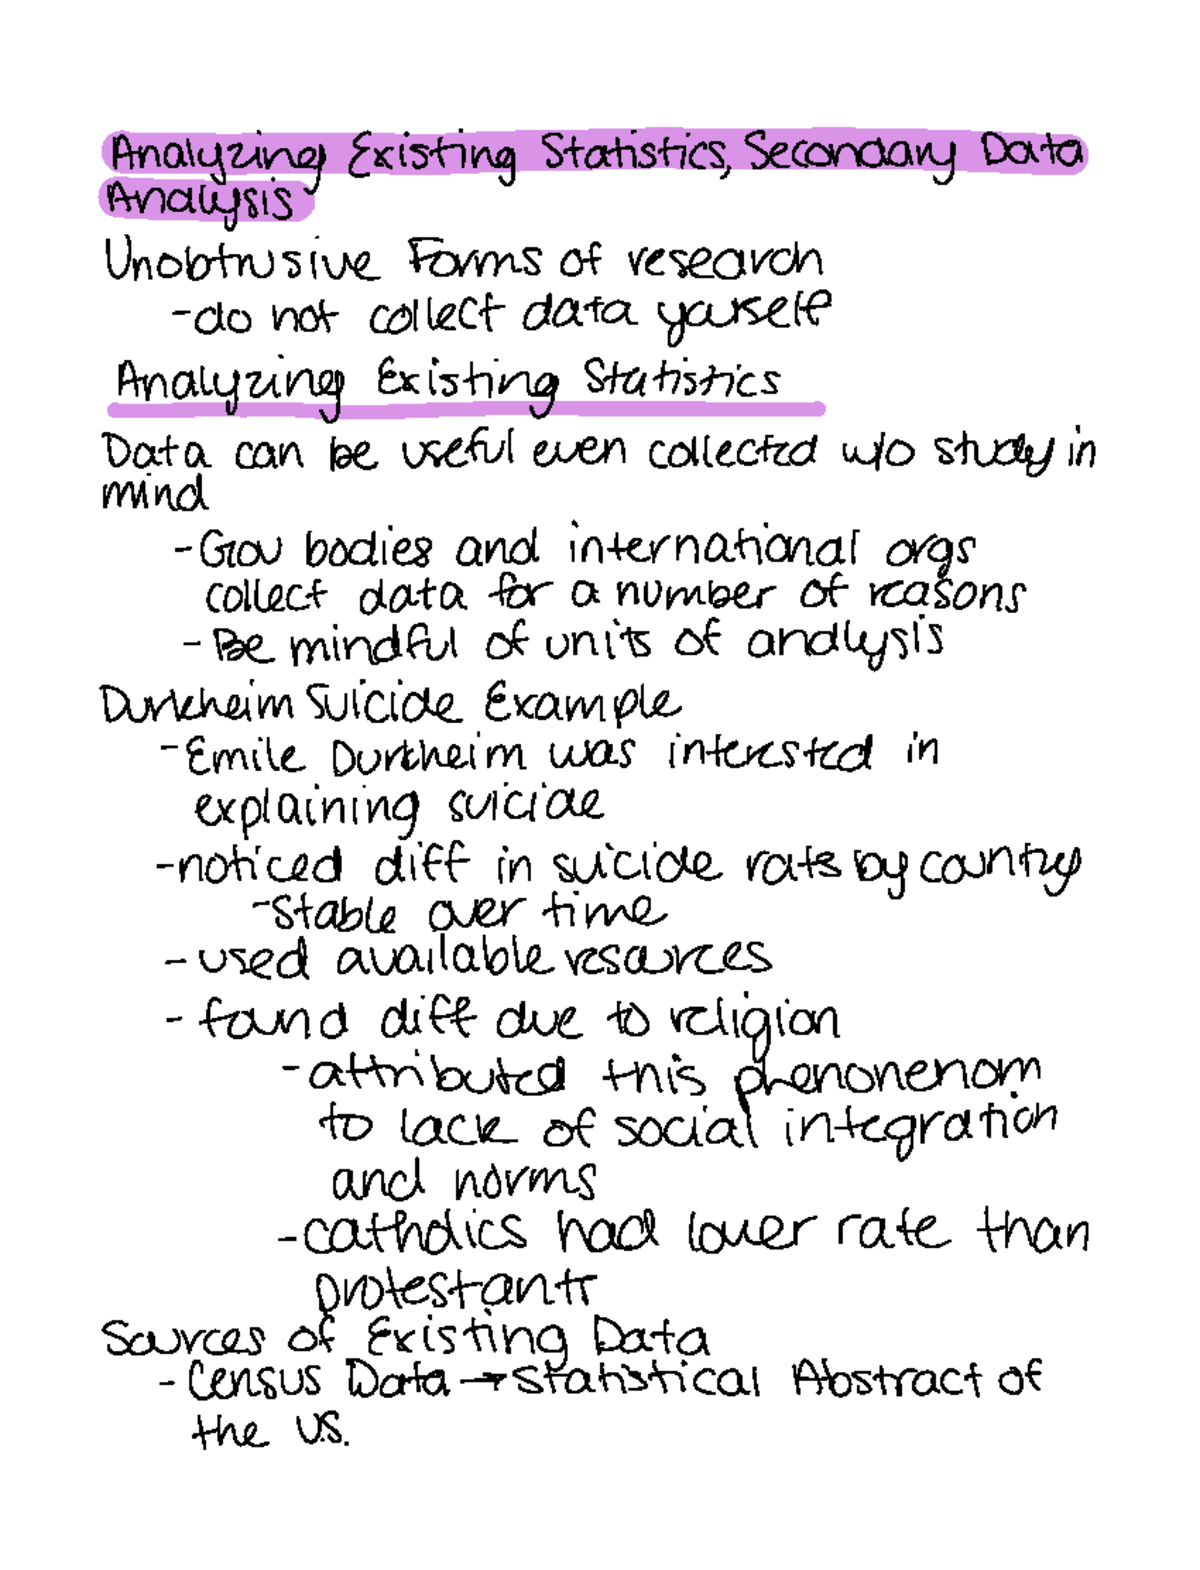 Analyzing Existing Statistics, Secondary Data
Analysis
Unobtrusive Forms of research
-do not collect data yourself
Analyzing Existing Statistics
Data can be useful even collected w/o study in
mind
-Gov bodies and international orgs
collect data for a number of reasons
-Be mindful of units of analysis
Durkheim Suicide Example
-Emile Durkheim was interested in
explaining suicide
-noticed diff in suicide rates by country
-Stable over time
-used available resources
-found diff due to religion
-attributed this phenonenom
to lack of social integration
and norms
-catholics had lower rate than
protestants
Sources of Existing Data
-Census Data → Statistical Abstract of
the U.S.